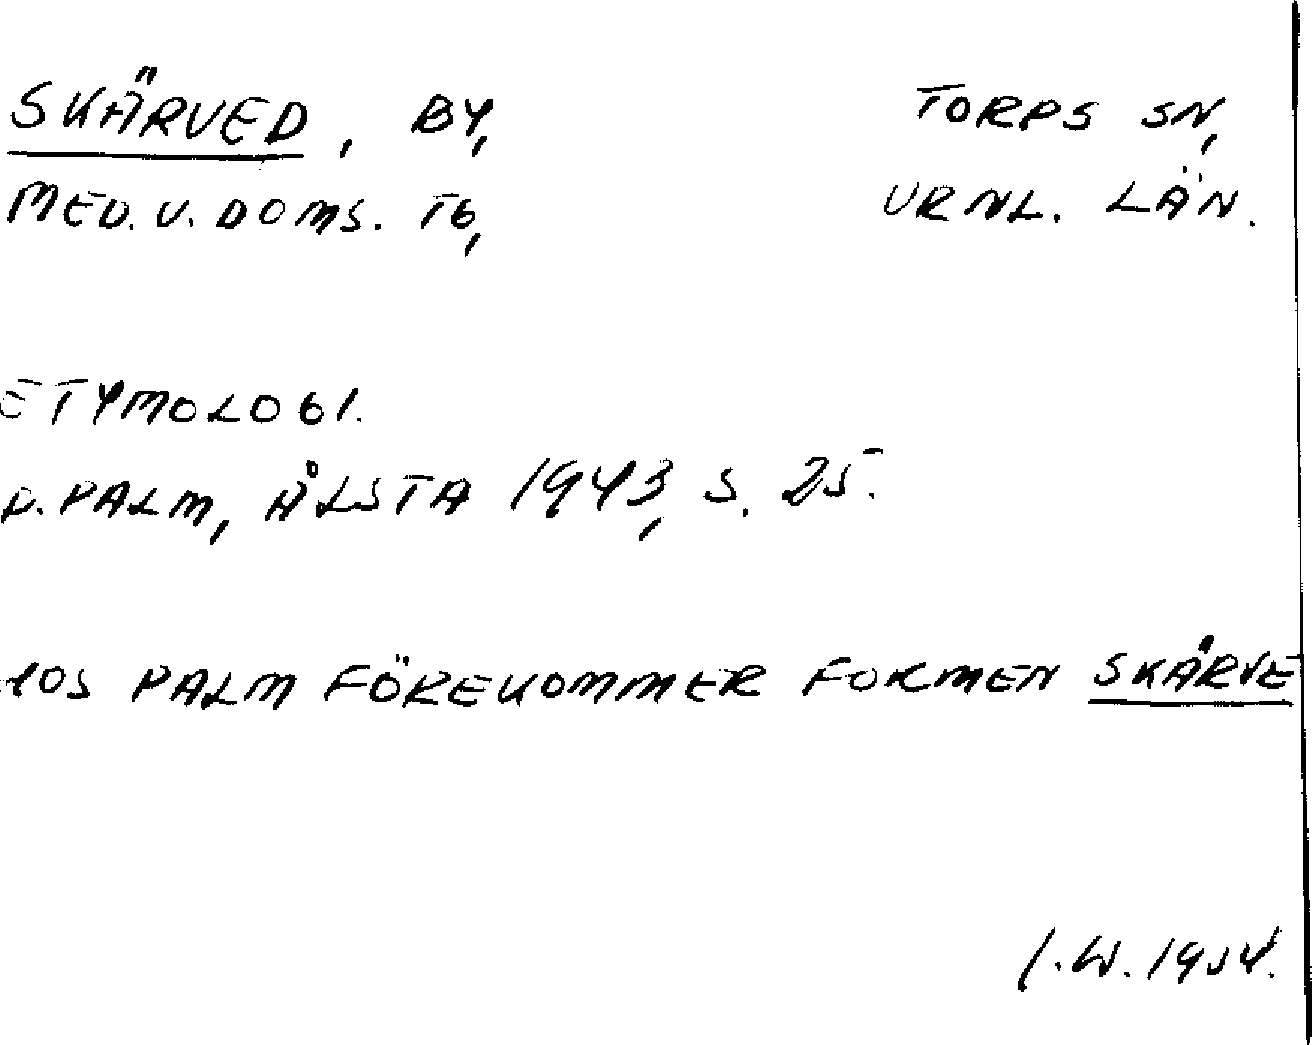 SKÄRVED, BY, TORPS SN,
MED. V. DOMS. TG, VRNL. LÄN.
ETYMOLOGI.
D. PALM, ÅLSTA 1943, S. 25.
HOS PALM FÖREKOMMER FORMEN SKÄRVE
I. W. 1954.